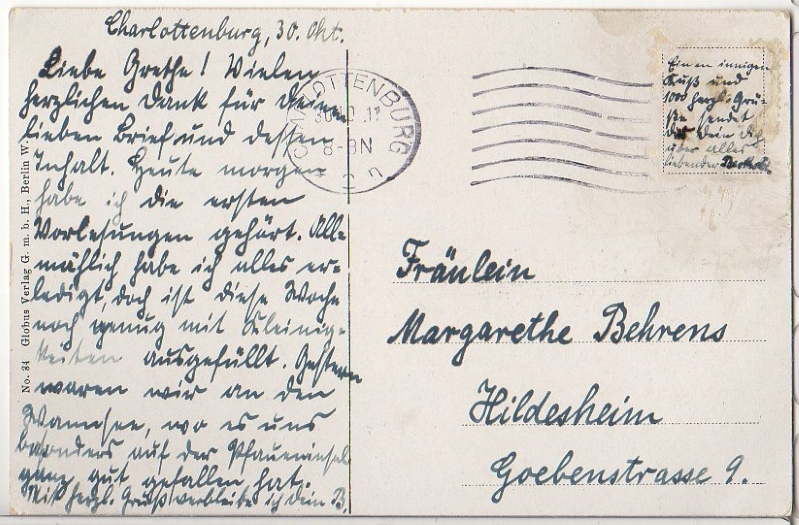 Charlottenburg, 30. Okt.
Liebe Grethe! Vielen
herzlichen Dank für Deinen
lieben Brief und dessen
Inhalt. Heute morgen
habe ich die ersten
Vorlesungen gehört. All-
mählich habe ich alles er-
ledigt, doch ist diese Woche
noch genug mit Kleinig-
keiten ausgefüllt. Gestern
waren wir an den
Wannsee, wo es uns
besonders auf der Pfaueninsel
ganz gut gefallen hat.
Mit herzl. Gruß verbleibe ich Dein B.
CHARLOTTENBURG
8-9N
Einen innigen
Kuß und
1000 herzl. Grü-
ße sendet
Dir Dein Dich
über alles
liebender
Fräulein
Margarethe Behrens
Hildesheim
Goebenstrasse 9.
No. 84 Globus Verlag G. m. b. H., Berlin W.